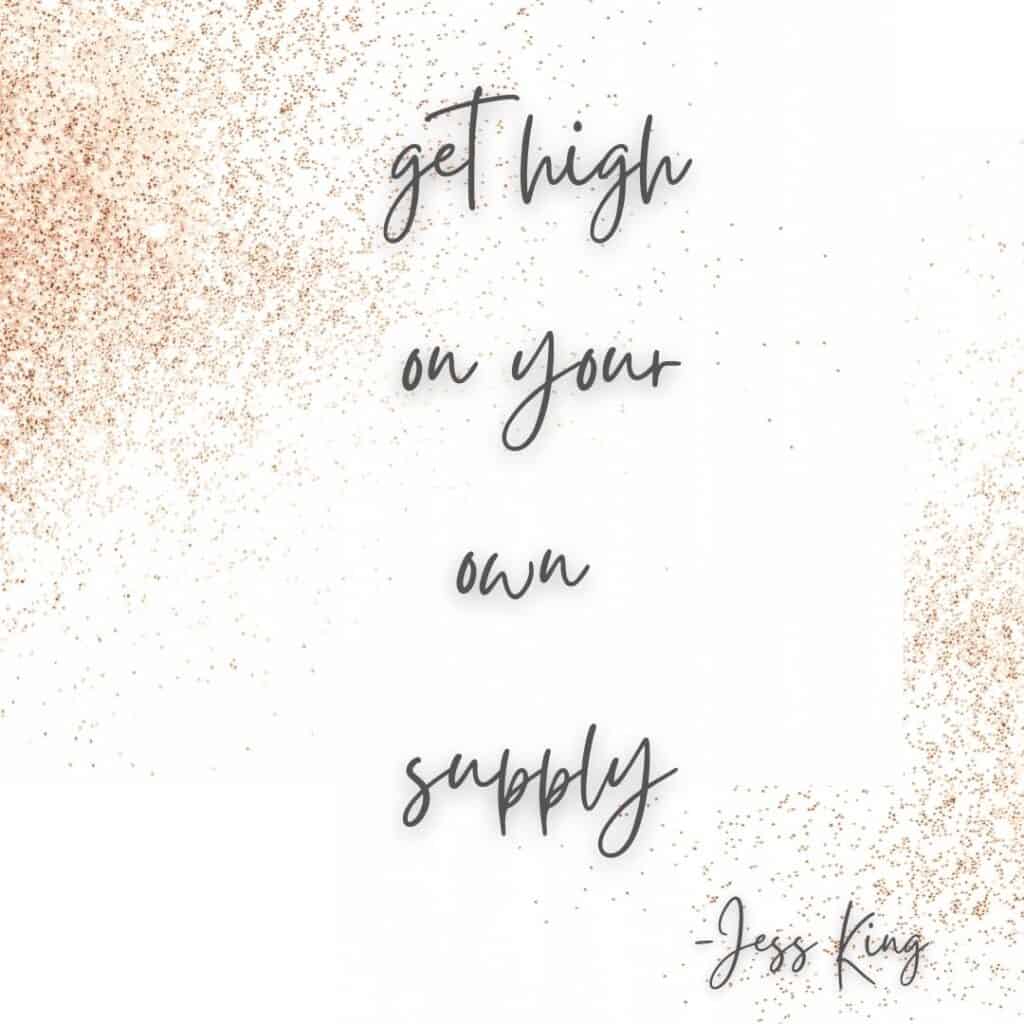 get high
on your
own
supply
-Jess King